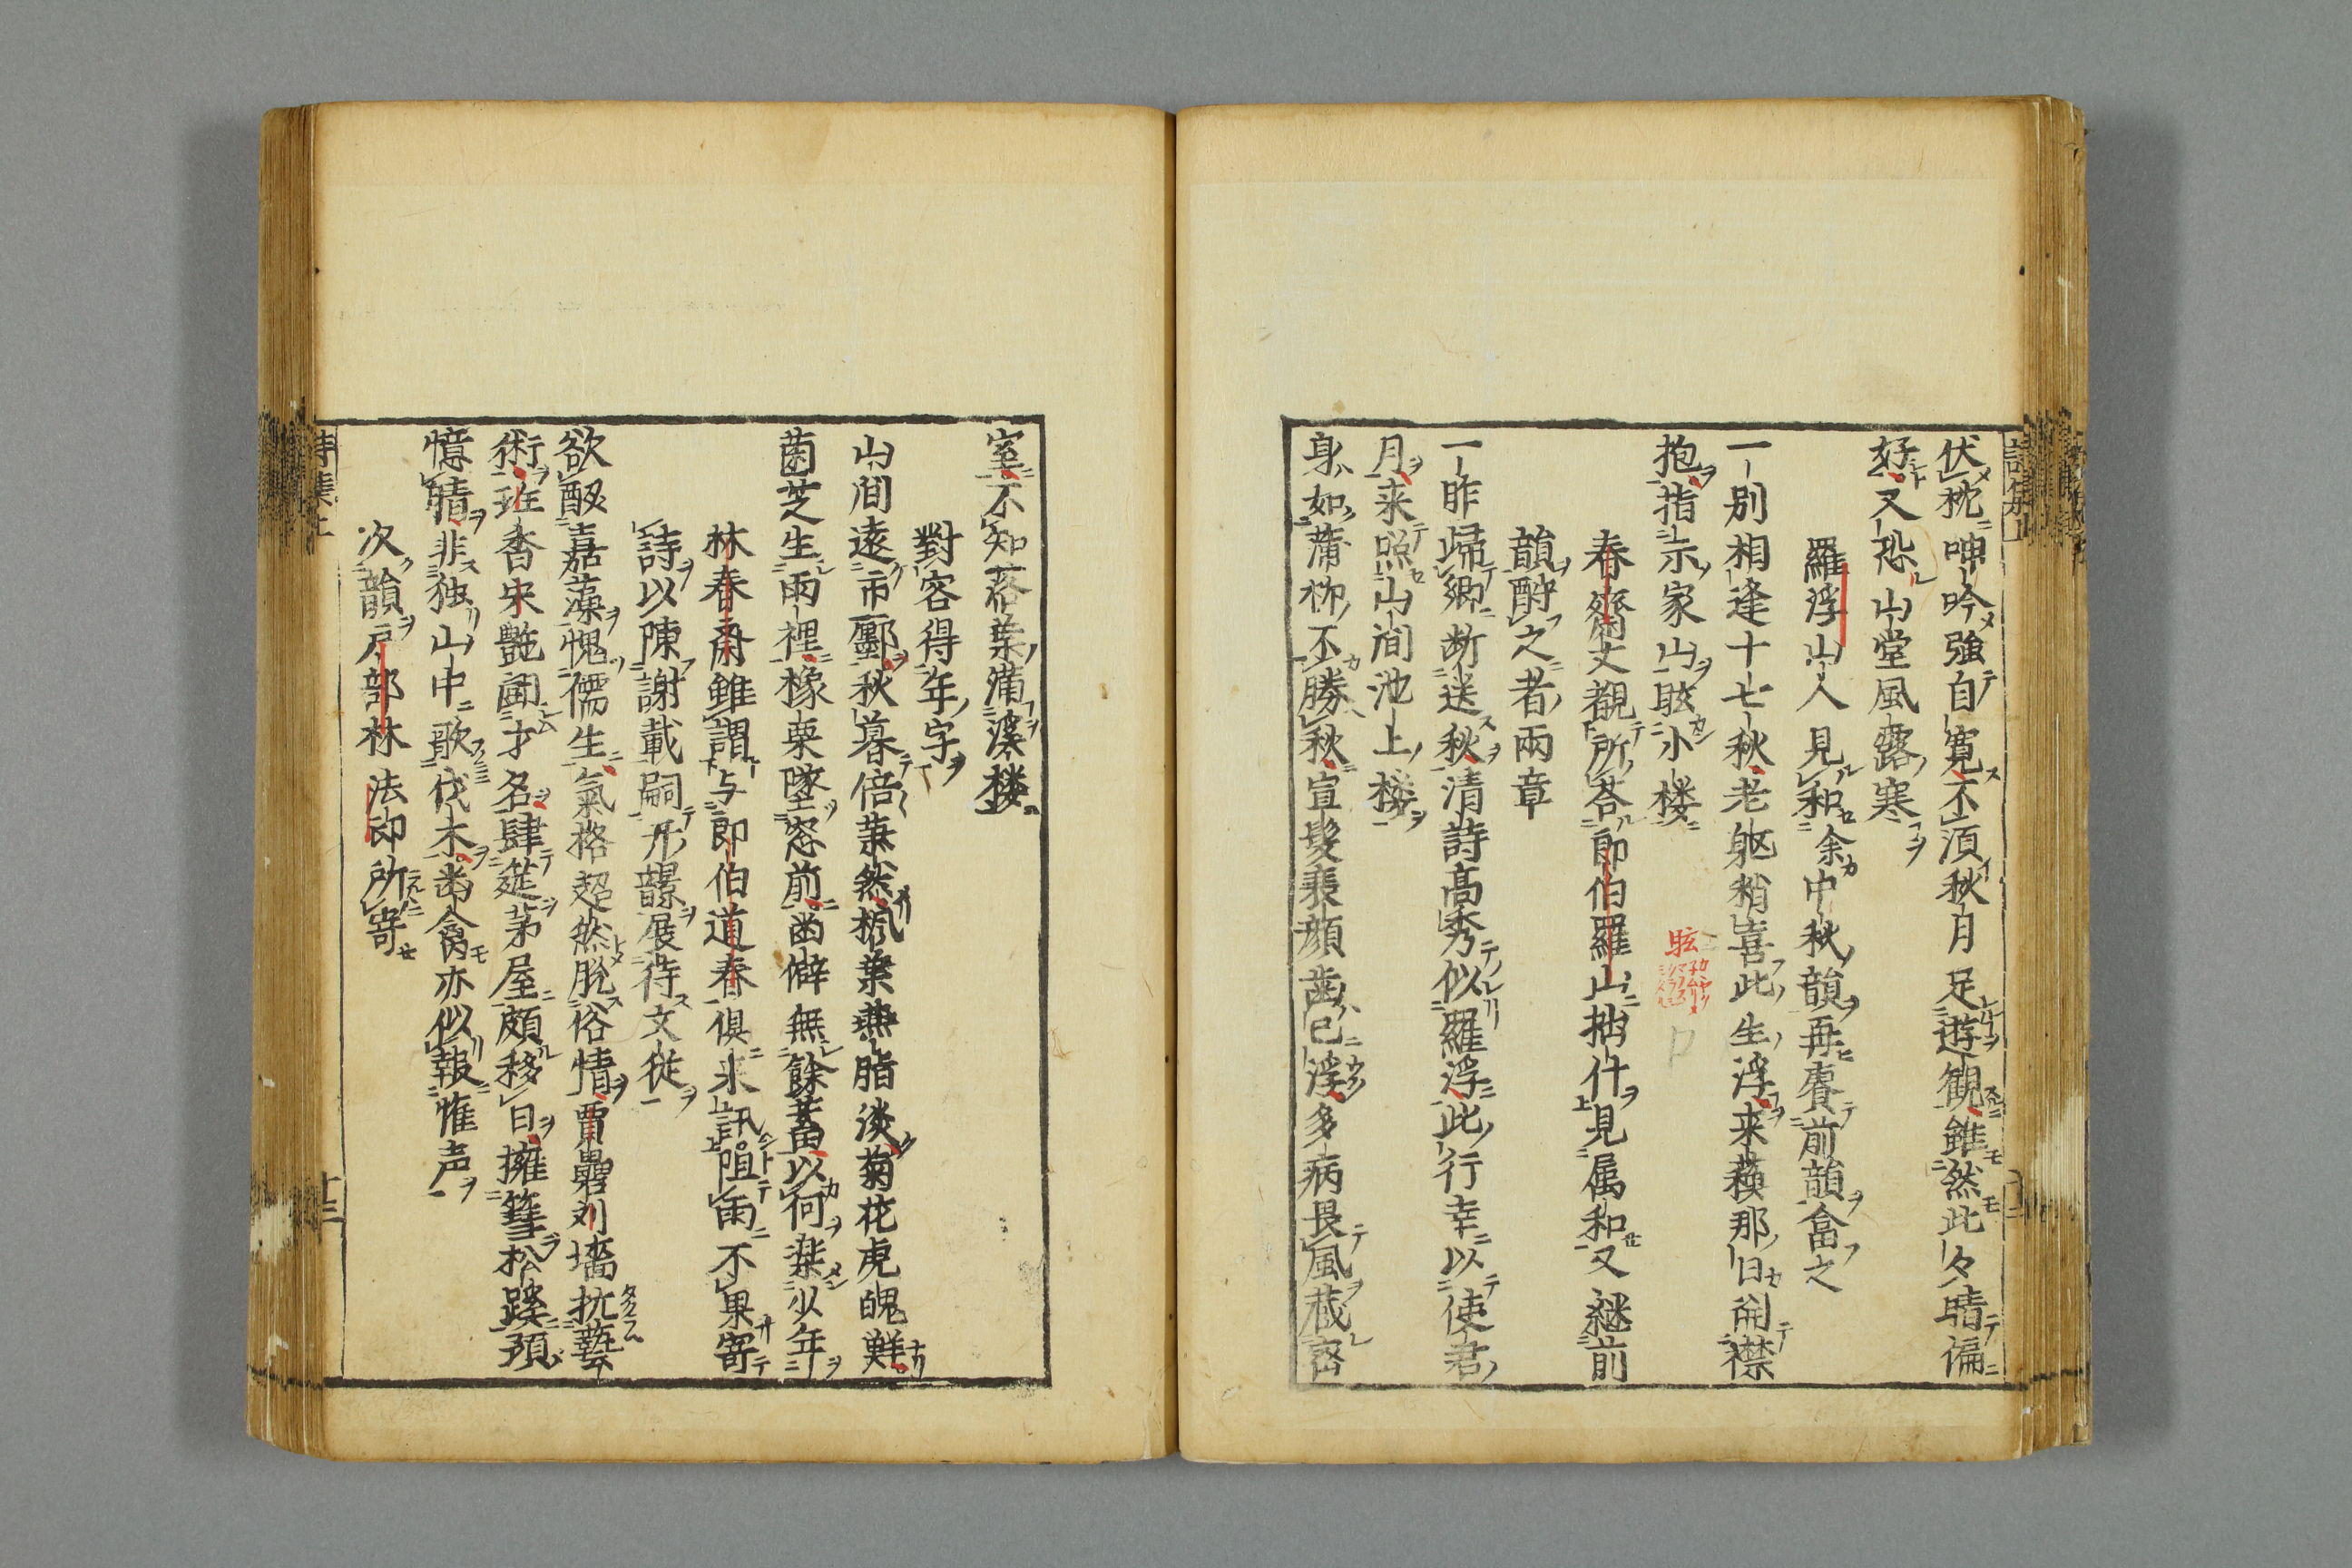 伏枕呻吟強自寛不須秋月足遊観雖然此夕晴偏
好又恐山堂風露寒
羅浮山人見和余中秋韻再賡前韻畣之
一別相逢十七秋老躯稍喜此生浮来蘋那日開襟
抱指示家山眩小楼
眩
春齋丈觀所答郎伯羅山拙什見属和又継前
韻酧之者兩章
一昨歸郷断送秋清詩高秀似羅浮此行幸以使君
月来照山間池上楼
身如蒲柳不勝秋宣髮衰顔歯已浮多病畏風蔵密
室不知落葉満溪楼
對客得年字
山間遠市鄽秋暮倍蕭然楓葉燕脂淡菊花虎魄鮮
菌芝生雨裡橡栗墜窓前函僻無餘蓄以何楽少年
林春斎雖謂与郎伯道春倶来訊阻雨不果寄
詩以陳謝載嗣形韻展待文従
欲酘嘉藻愧儒生氣格超然脱俗情賈壘刘墻抗藝
術班香宋艶闘才名肆筵茅屋頗移日擁篲松蹊預
憶晴非独山中歌伐木幽禽亦似報惟声
次韻戸部林法印所寄
詩集上
十三